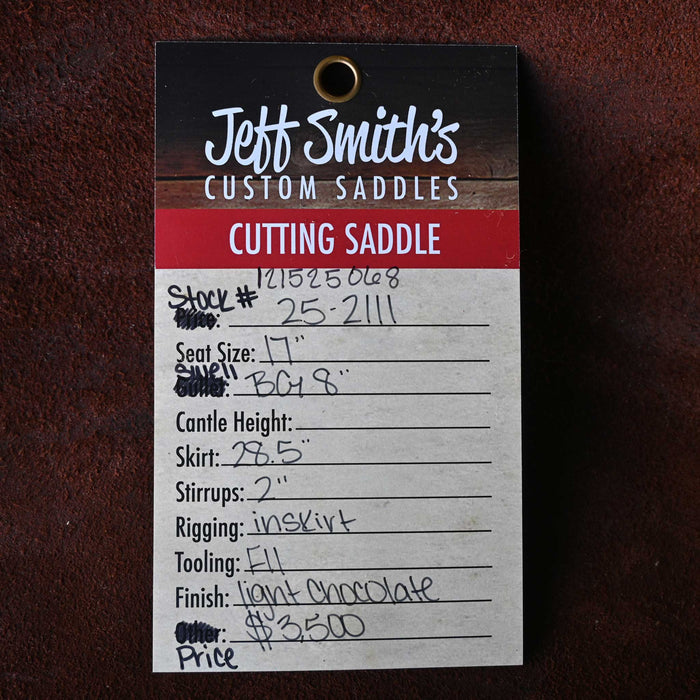 Jeff Smith's
CUSTOM SADDLES
CUTTING SADDLE
121525068
Stock # 25-2111
Seat Size: 17"
Swell BG 8"
Cantle Height:
Skirt: 28.5"
Stirrups: 2"
Rigging: inskirt
Tooling: E11
Finish: light chocolate
Other: $3,500
Price